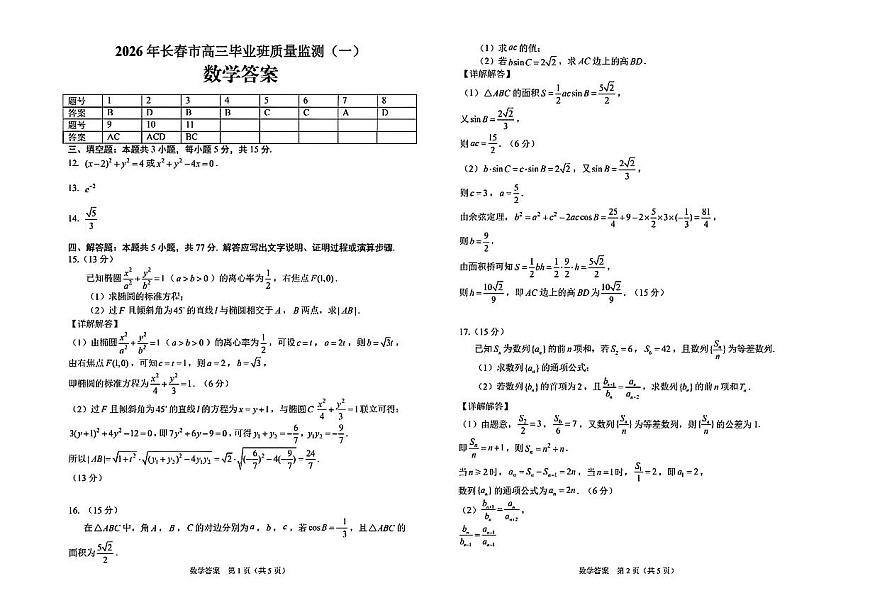 2026 年长春市高三毕业班质量监测（一）
数学答案
题号 1 2 3 4 5 6 7 8
答案 B D B B C C A D
题号 9 10 11
答案 AC ACD BC
三、填空题：本题共 3 小题，每小题 5 分，共 15 分.
12. (x−2)²+y²=4 或 x²+y²−4x=0.
13. e⁻²
14. √5/3
四、解答题：本题共 5 小题，共 77 分. 解答应写出文字说明、证明过程或演算步骤.
15.(13 分)
已知椭圆 x²/a²+y²/b²=1（a>b>0）的离心率为 1/2，右焦点 F(1,0).
（1）求椭圆的标准方程；
（2）过 F 且倾斜角为 45° 的直线 l 与椭圆相交于 A，B 两点，求|AB|.
【详解解答】
（1）由椭圆 x²/a²+y²/b²=1（a>b>0）的离心率为 1/2，可设 c=t，a=2t，则 b=√3t，
由右焦点 F(1,0)，可知 c=t=1，则 a=2，b=√3，
即椭圆的标准方程为 x²/4+y²/3=1.（6 分）
（2）过 F 且倾斜角为 45° 的直线 l 的方程为 x=y+1，与椭圆 C x²/4+y²/3=1 联立可得：
3(y+1)²+4y²−12=0，即 7y²+6y−9=0，可得 y₁+y₂=−6/7，y₁y₂=−9/7.
所以|AB|=√(1+t²)·√((y₁+y₂)²−4y₁y₂)=√2·√((−6/7)²−4(−9/7))=24/7.
（13 分）
16. （15 分）
在△ABC 中，角 A，B，C 的对边分别为 a，b，c，若 cosB=−1/3，且△ABC 的
面积为 5√2/2.
数学答案 第 1 页（共 5 页）
（1）求 ac 的值；
（2）若 bsinC=2√2，求 AC 边上的高 BD.
【详解解答】
（1）△ABC 的面积 S=1/2 acsinB=5√2/2，
又 sinB=2√2/3，
则 ac=15/2.（6 分）
（2）b·sinC=c·sinB=2√2，又 sinB=2√2/3，
则 c=3，a=5/2.
由余弦定理，b²=a²+c²−2accosB=25/4+9−2×5/2×3×(−1/3)=81/4，
则 b=9/2.
由面积桥可知 S=1/2 bh=1/2·9/2·h=5√2/2，
则 h=10√2/9，即 AC 边上的高 BD 为 10√2/9.（15 分）
17.（15 分）
已知 Sₙ 为数列{aₙ}的前 n 项和，若 S₂=6，S₆=42，且数列{Sₙ/n}为等差数列.
（1）求数列{aₙ}的通项公式；
（2）若数列{bₙ}的首项为 2，且 bₙ₊₁/bₙ=aₙ/aₙ₊₂，求数列{bₙ}的前 n 项和 Tₙ.
【详解解答】
（1）由题意，S₂/2=3，S₆/6=7，又数列{Sₙ/n}为等差数列，则{Sₙ/n}的公差为 1.
即 Sₙ/n=n+1，则 Sₙ=n²+n.
当 n≥2 时，aₙ=Sₙ−Sₙ₋₁=2n，当 n=1 时，S₁/1=2，即 a₁=2，
数列{aₙ}的通项公式为 aₙ=2n.（6 分）
（2）bₙ₊₁/bₙ=aₙ/aₙ₊₂，
bₙ/bₙ₋₁=aₙ₋₁/aₙ₊₁
数学答案 第 2 页（共 5 页）